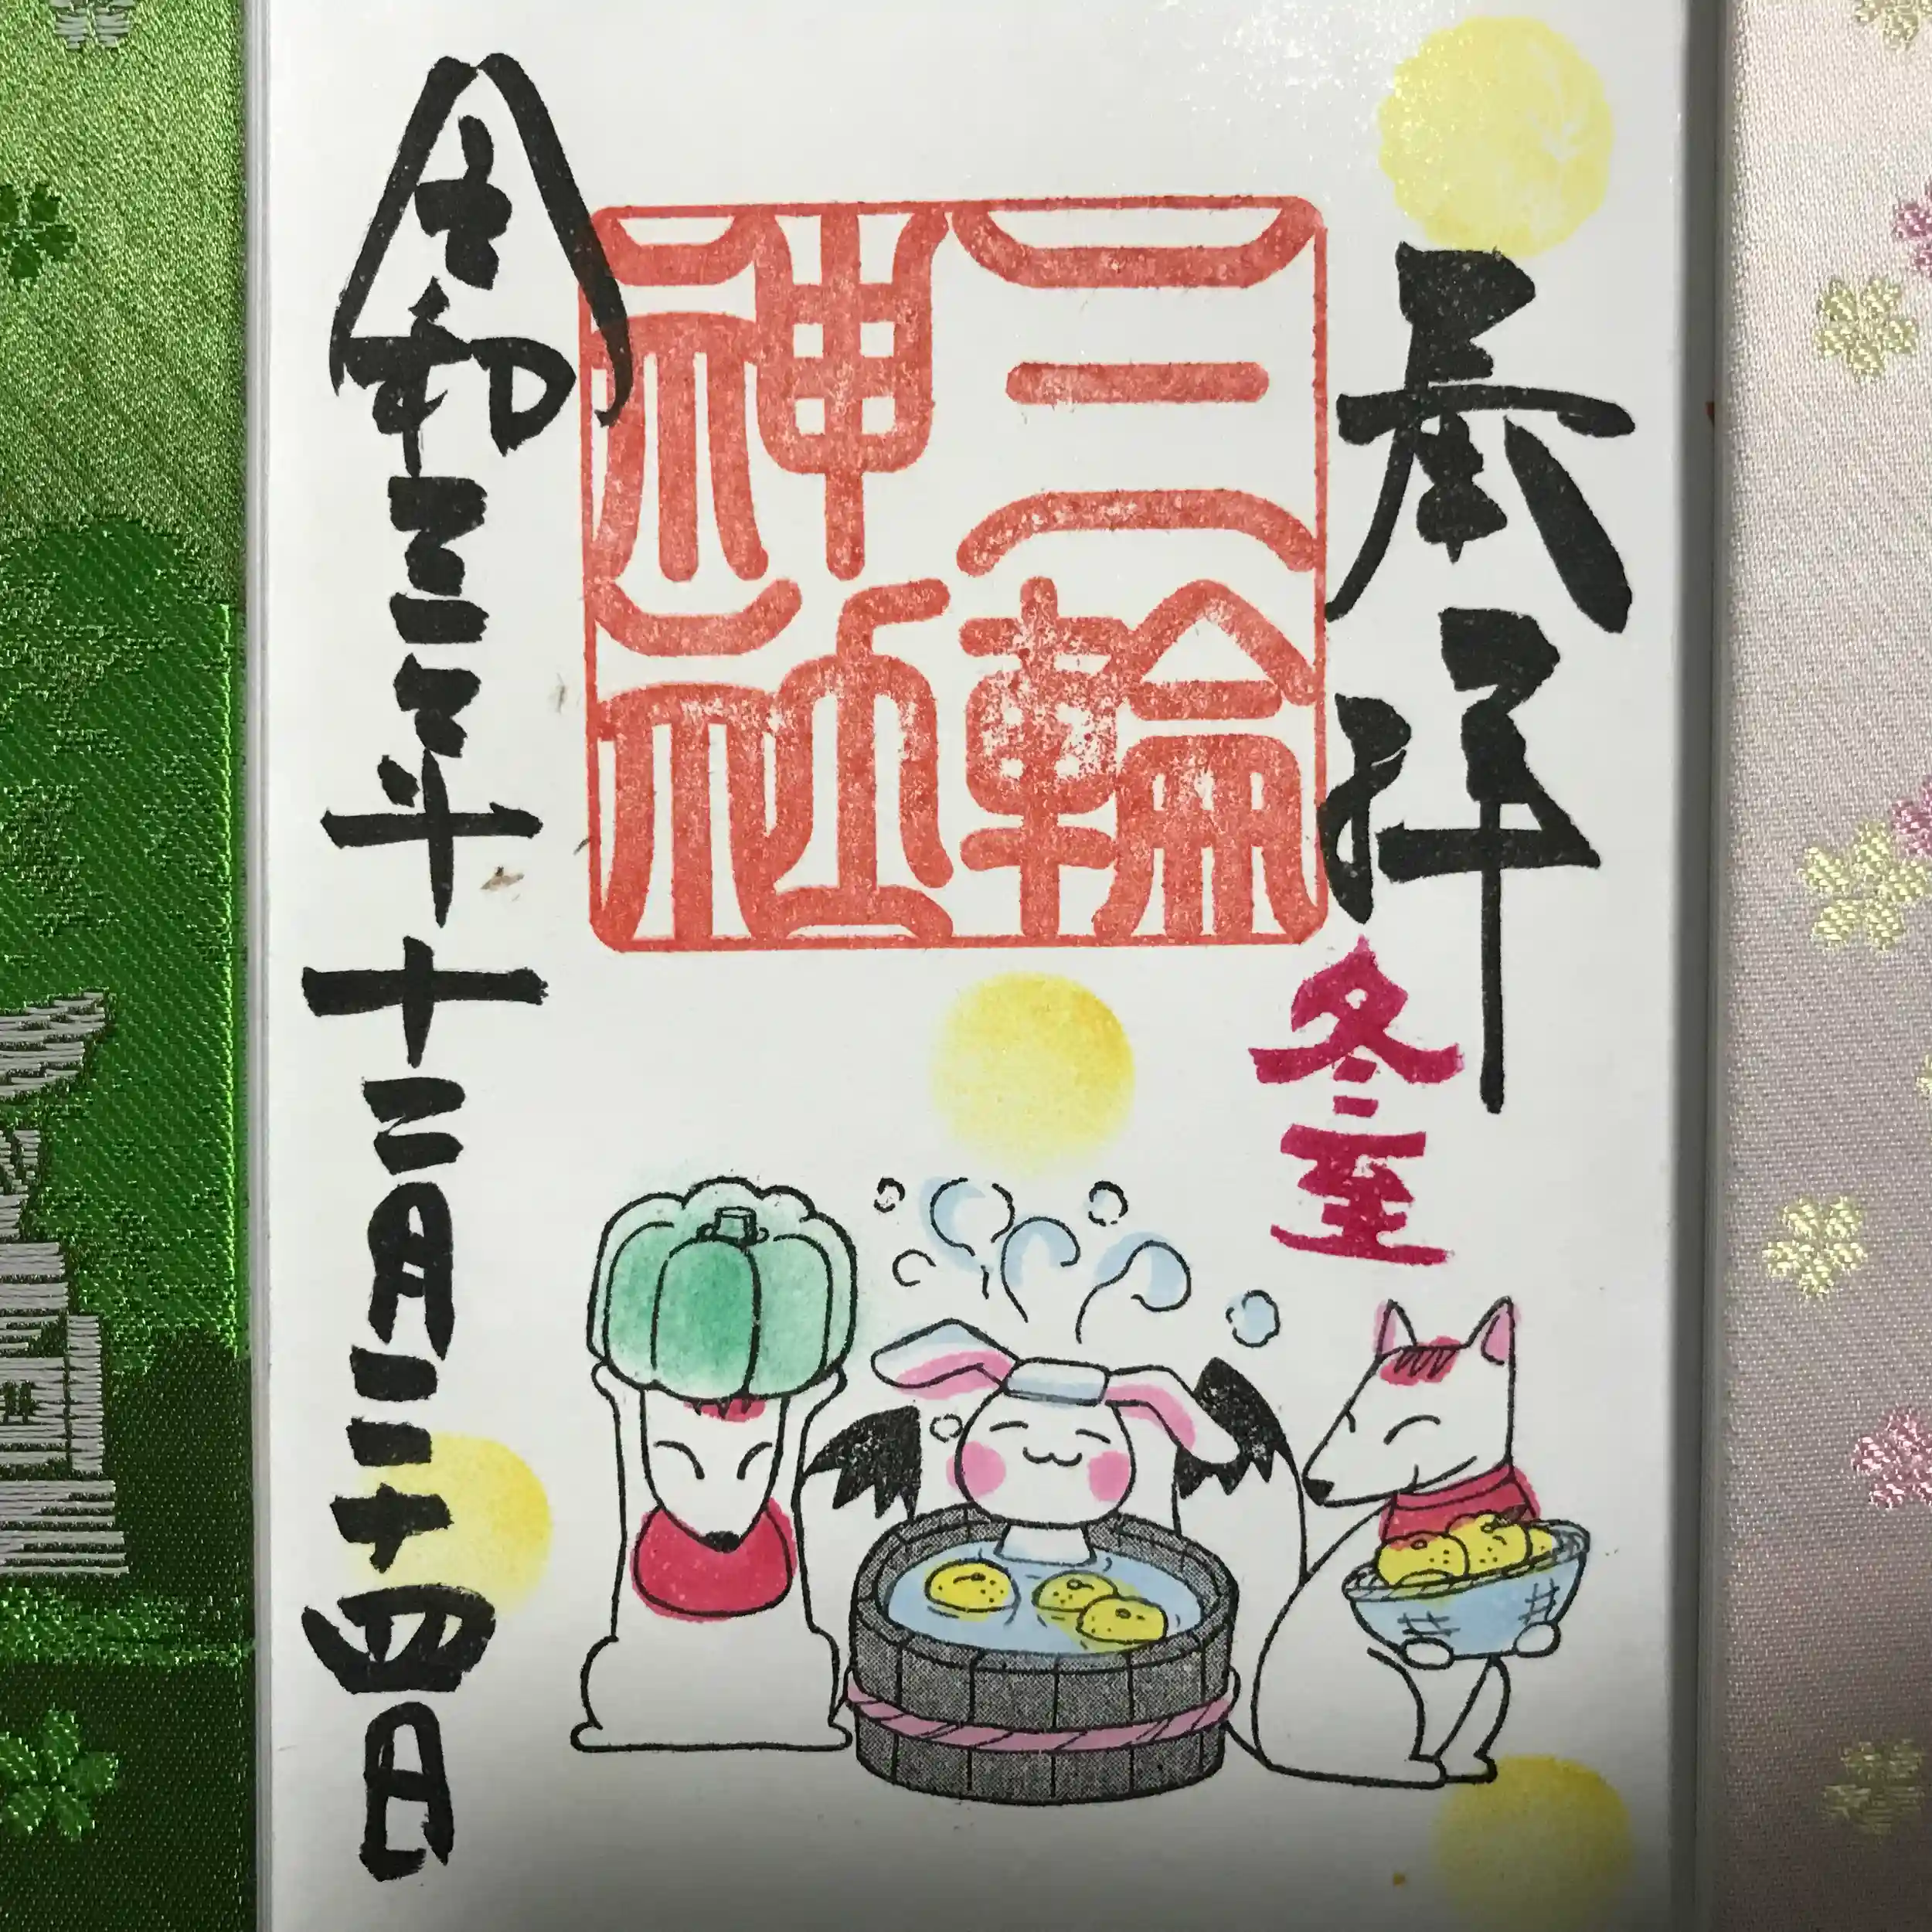 奉拝
冬至
三輪
神社
令和三年十二月二十四日